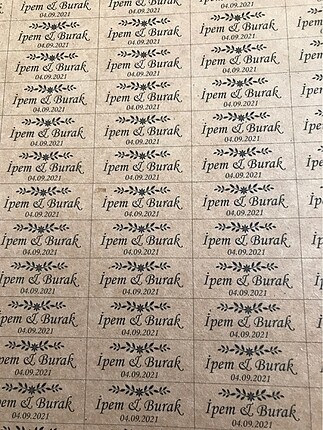 İpem & Burak İpem & Burak İpem & Burak
04.09.2021 04.09.2021 04.09.2021
İpem & Burak İpem & Burak İpem & Burak
04.09.2021 04.09.2021 04.09.2021
İpem & Burak İpem & Burak İpem & Burak
04.09.2021 04.09.2021 04.09.2021
İpem & Burak İpem & Burak İpem & Burak
04.09.2021 04.09.2021 04.09.2021
İpem & Burak İpem & Burak İpem & Burak
04.09.2021 04.09.2021 04.09.2021
İpem & Burak İpem & Burak İpem & Burak
04.09.2021 04.09.2021 04.09.2021
İpem & Burak İpem & Burak İpem & Burak
04.09.2021 04.09.2021 04.09.2021
İpem & Burak İpem & Burak İpem & Burak
04.09.2021 04.09.2021 04.09.2021
İpem & Burak İpem & Burak İpem & Burak
04.09.2021 04.09.2021 04.09.2021
İpem & Burak İpem & Burak İpem & Burak
04.09.2021 04.09.2021 04.09.2021
pem & Burak İpem & Burak İpem & Burak
04.09.2021 04.09.2021 04.09.2021
pem & Burak İpem & Burak İpem & Burak
04.09.2021 04.09.2021 04.09.2021